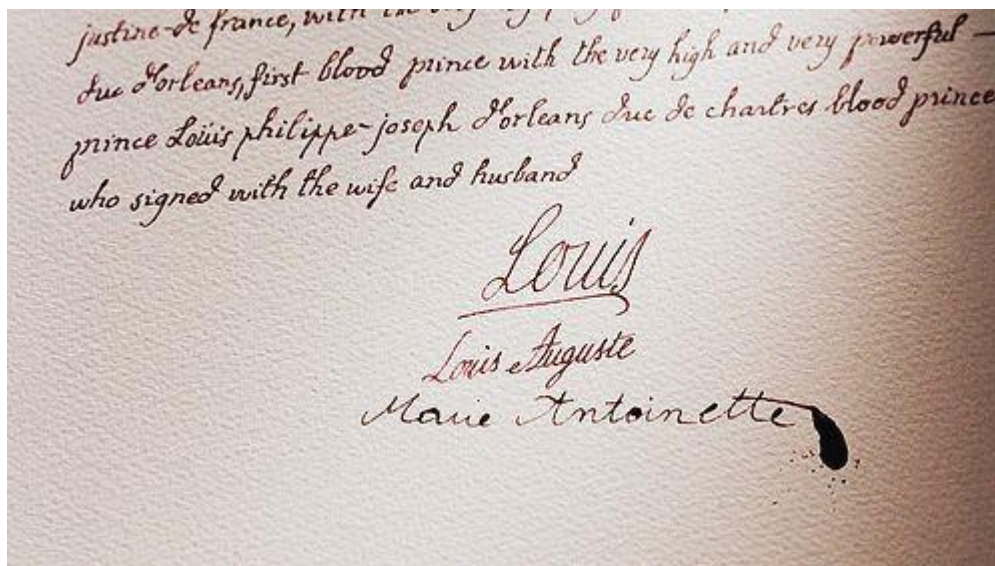 justine-de france, with the very
duc d'orleans, first blood prince with the very high and very powerful —
prince Loüis philippe-joseph d'orleans duc de chartres blood prince
who signed with the wife and husband
Louis
Louis Auguste
Marie Antoinette